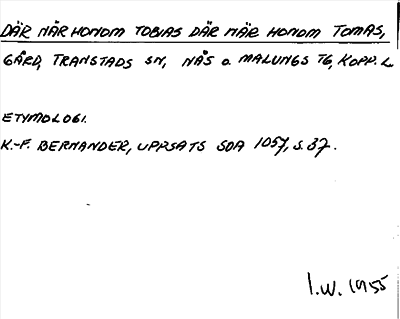 DÄR NÄR HONOM TOBIAS DÄR NÄR HONOM TOMAS,
GÅRD, TRANSTADS SN, NÅS O. MALUNGS TG, KOPP. L
ETYMOLOGI.
K.-F. BERNANDER, UPPSATS SOA 1057, S. 37.
I.W. 1955